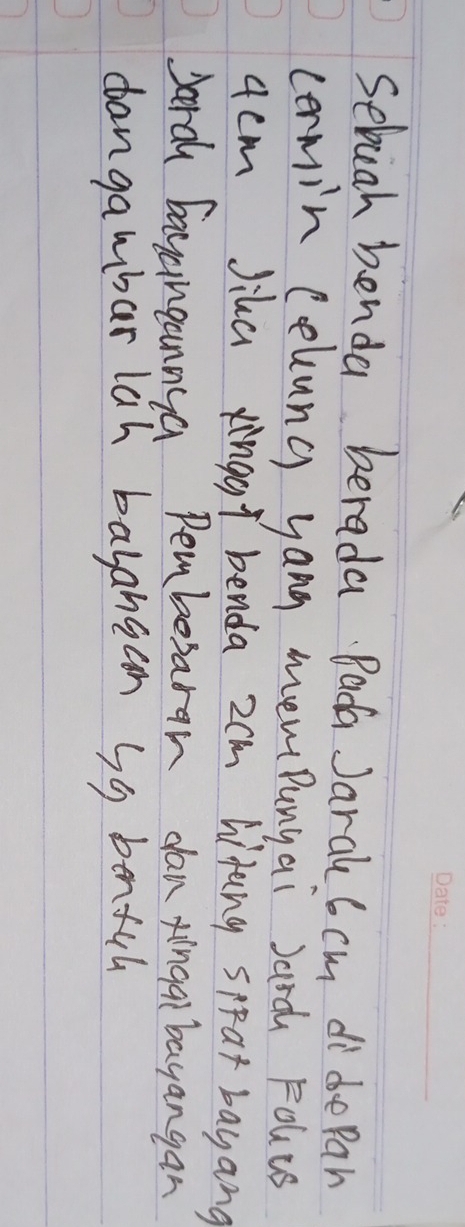 Date:
Sebuah benda berada Pada Jarak 6 cm di depan
Cermin Cekung yang memPunyai Jarak Fokus
4cm Jika tinggi benda 2cm hitung sifat bayang
Jarak bayingannya Pembesaran dan tinggi bayangan
dan gambar lah bayangan yg bentuk